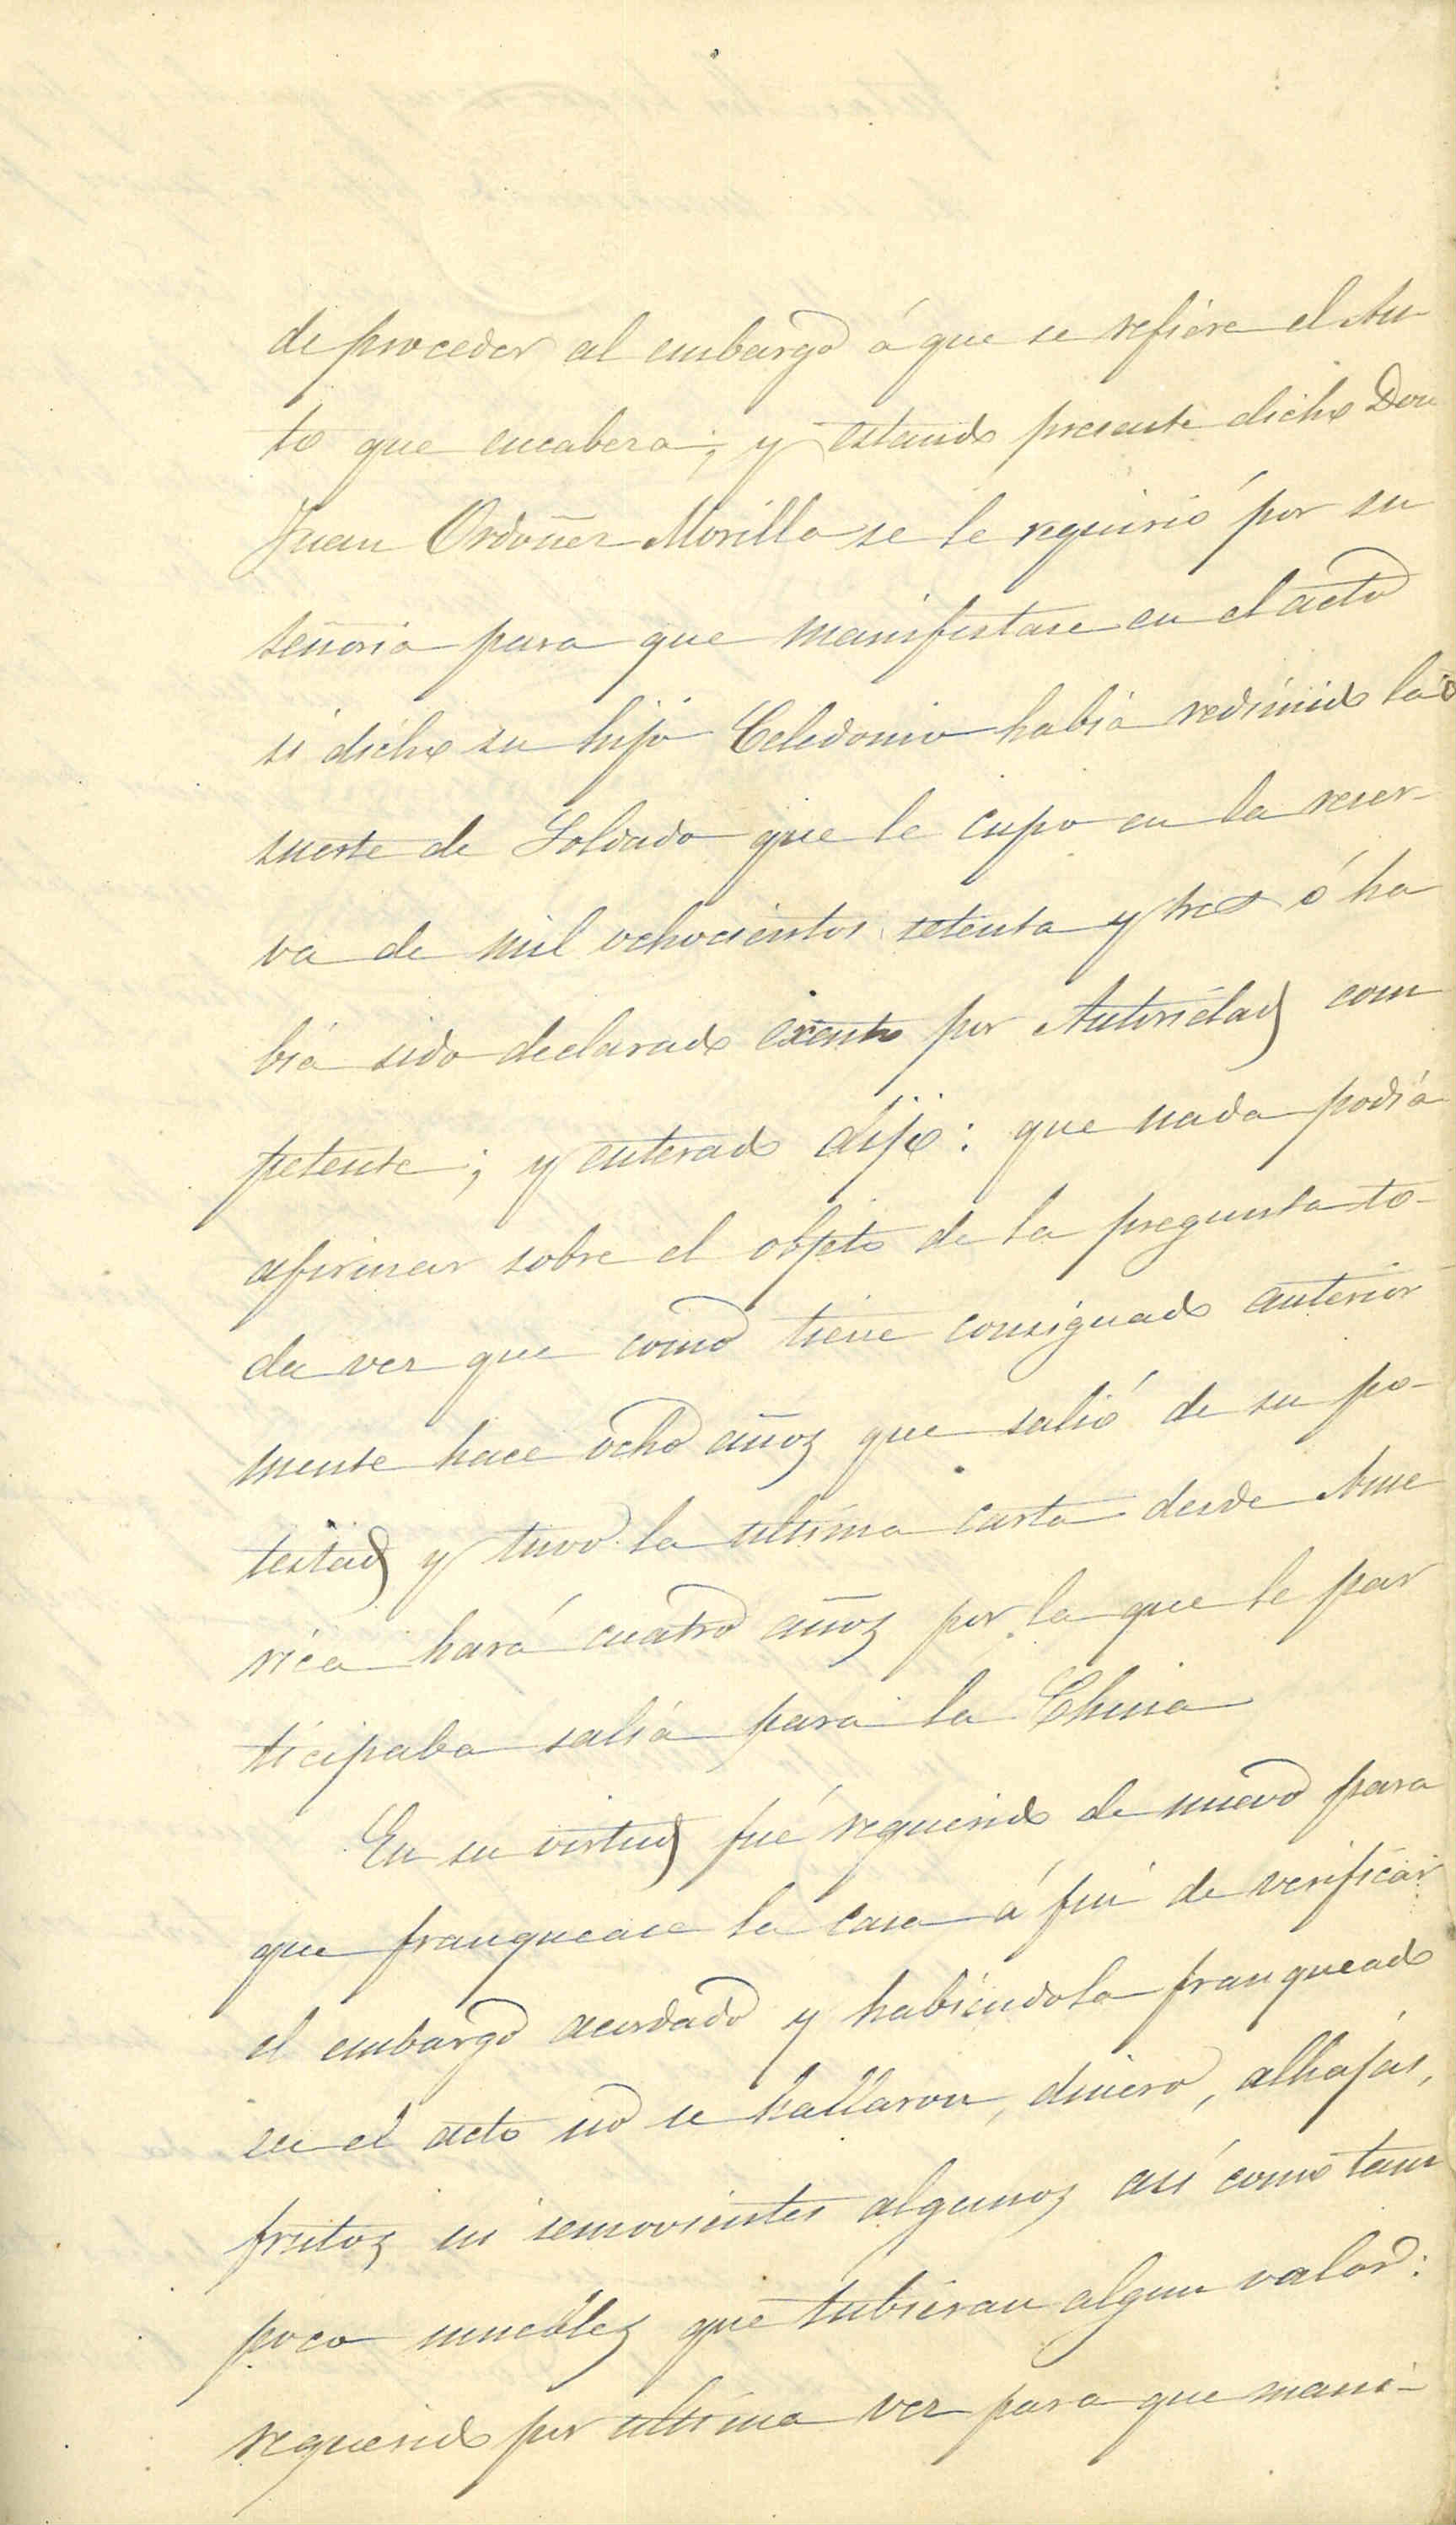 de proceder al embargo á que se refiere el Au
to que encabeza; y estando presente dicho Don
Juan Ordoñez Morilla se le requirió por su
señoria para que manifestase en el acto
si dicho su hijo Celedonio habia redimido la
suerte de Soldado que le cupo en la reser-
va de mil ochocientos setenta y tres ó ha
bia sido declarado exento por Autoridad com
petente; y enterado dijo: que nada podia
afirmar sobre el objeto de la pregunta to-
da vez que como tiene consignado anterior
mente hace ocho años que salió de su po-
testad y tuvo la ultima carta desde Ame
rica hará cuatro años por la que le par
ticipaba salia para la China
En su virtud fué requerido de nuevo para
que franquease la casa á fin de verificar
el embargo acordado y habiendola franqueado
en el acto no se hallaron, dinero, alhajas,
frutos ni semovientes algunos asi como tam
poco muebles que tubieran algun valor:
requerido por ultima vez para que mani-